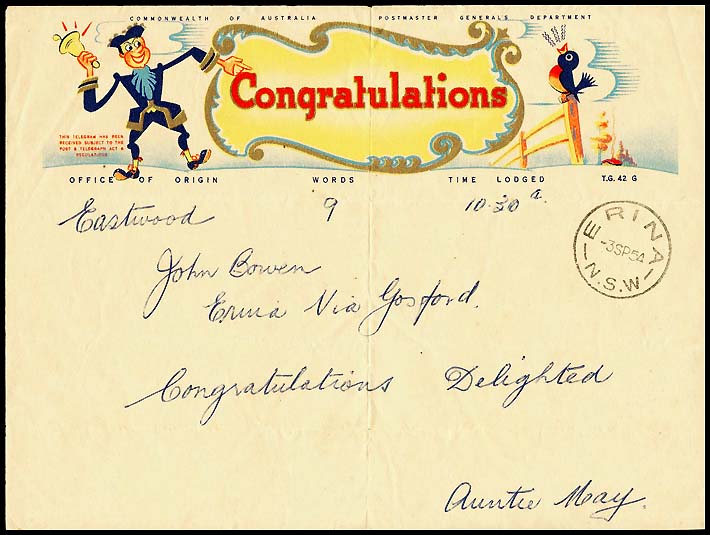 COMMONWEALTH OF AUSTRALIA POSTMASTER GENERAL'S DEPARTMENT
Congratulations
THIS TELEGRAM HAS BEEN
RECEIVED SUBJECT TO THE
POST & TELEGRAPH ACT &
REGULATIONS
OFFICE OF ORIGIN WORDS TIME LODGED T.G. 42 G
Eastwood 9 10.30 a.
ERINA
-3SP54
N.S.W
John Bowen
Erina Via Gosford.
Congratulations Delighted
Auntie May.